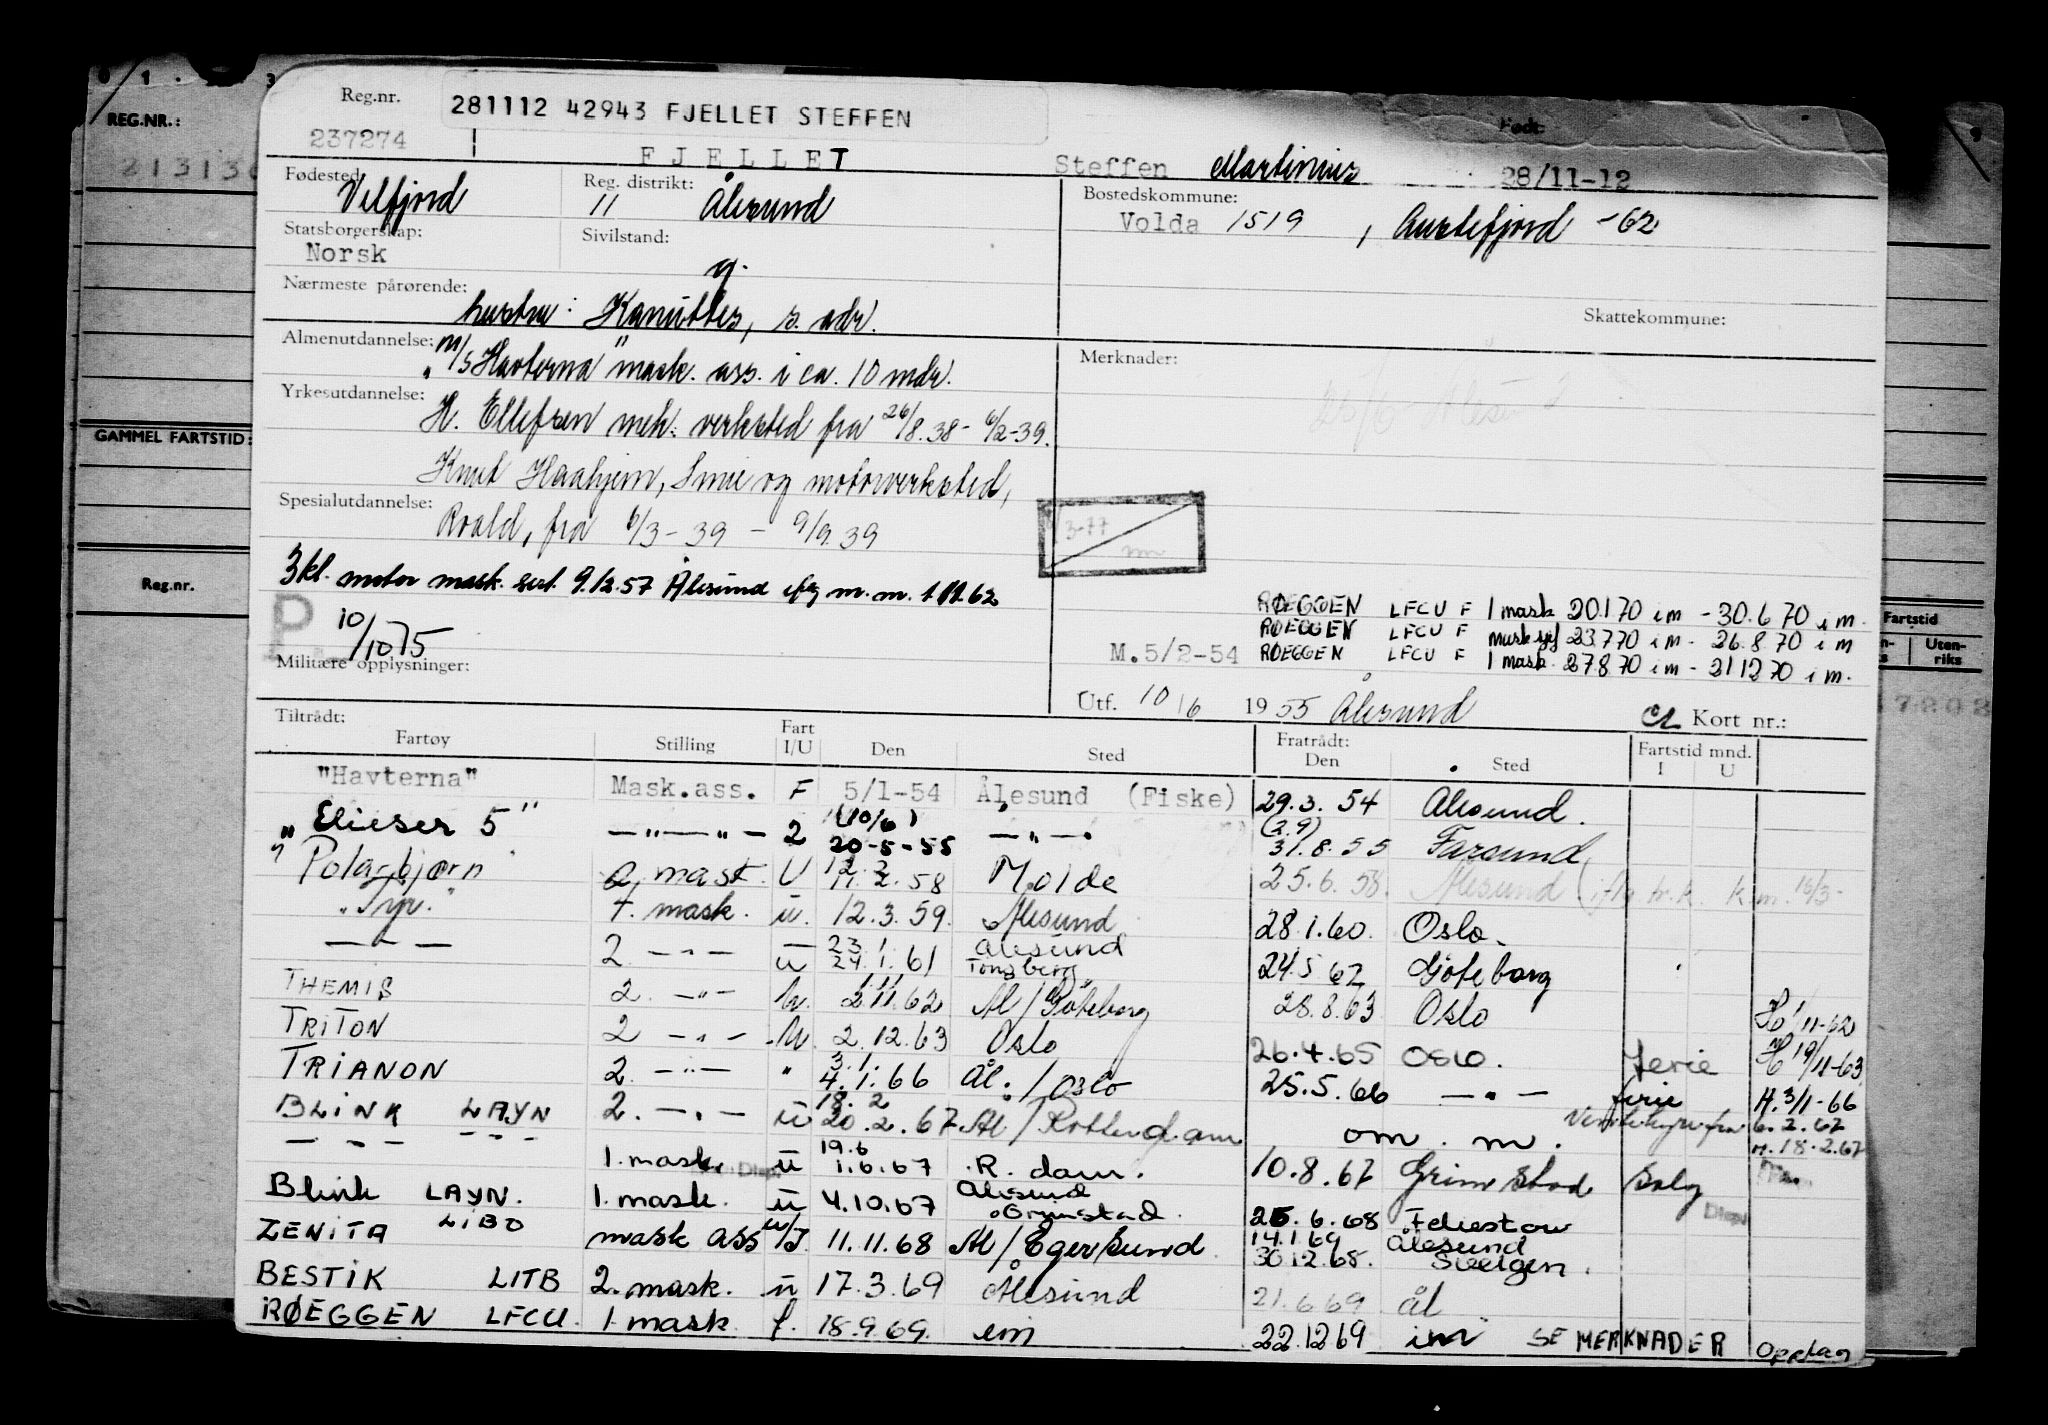 REG.NR.:
Reg.nr.
281112 42943 FJELLET STEFFEN
237274
FJELLET Steffen Martinius 28/11-12
Født
Fødested: Velfjord
Reg. distrikt: 11 Ålesund
Bostedskommune: Volda 1519, Austefjord -62
Statsborgerskap: Norsk
Sivilstand: g.
Nærmeste pårørende:
hustru: Kanuttes, s. adr.
Skattekommune:
Almenutdannelse: M/S "Havterna" mask. ass. i ca. 10 mdr.
Merknader:
Yrkesutdannelse: H. Ellefsen mek. verksted fra 26/8.38 - 6/2-39.
GAMMEL FARTSTID:
Knut Haahjem, Smie og motorverksted,
Spesialutdannelse: Roald, fra 6/3-39 - 9/9.39
3-77
3kl. motor mask. sert 9.12.57 Ålesund m.m. 1.11.62
Reg.nr.
P
10/10 75
RØEGGEN LFCU F 1 mask 20.1.70 i m - 30.6.70 i m.
RØEGGEN LFCU F mask sjef 23.7.70 i m - 26.8.70 i m
M.5/2-54 RØEGGEN LFCU F 1 mask. 27.8.70 i m - 21.12.70 i m.
Fartstid
Uten-
riks
Militære opplysninger:
Utf. 10/6 1955 Ålesund Kort nr.:
Tiltrådt: Fartøy Stilling Fart I/U Den Sted Fratrådt: Den Sted Fartstid mnd. I U
"Havterna" Mask.ass. F 5/1-54 Ålesund (Fiske) 29.3.54 Ålesund.
"Elieser 5" — " — " — 2 (10/6) 20-5-55 — " — (2.9) 31.8.55 Farsund
"Polarbjørn" mask. U 12.2 11.2.58 Molde 25.6.58 Ålesund
"Tyr." 4. mask. u. 12.3.59. Ålesund 28.1.60. Oslo.
— " — 2 — " — u 23.1. 24.1.61 Ålesund Tønsberg 24.5.62 Göteborg
THEMIS 2. — " — U. 1.11 2.11.62 Ål/Göteborg 28.8.63 Oslo H 1/11-62
TRITON 2 — " — U. 2.12.63 Oslo 26.4.65 OSLO. ferie H 19/11-63
TRIANON 2. — " — " 3.1. 4.1.66 Ål./Oslo 25.5.66 — " — ferie H. 3/1-66
BLINK LAYN 2. — " — u 18.2 20.2.67 Ål/Rotterdam om. m. Ventehyre fra 6.2.67
H. 18-2.67
— " — — " — 1. mask. u 19.6 1.6.67 R. dam. 10.8.67 Grimstad Salg
Blink LAYN. 1. mask. u 4.10.67 Ålesund Grimstad. 25.6.68 Felixstow
ZENITA LIBO mask ass U/I 11.11.68 Ål/Egersund. 14.1.69 Ålesund
30.12.68. Svelgen.
BESTIK LITB 2. mask. u 17.3.69 Ålesund 21.6.69 Ål
RØEGGEN LFCU. 1. mask. f. 18.9.69. im 22.12.69 im SE MERKNADER Opptag